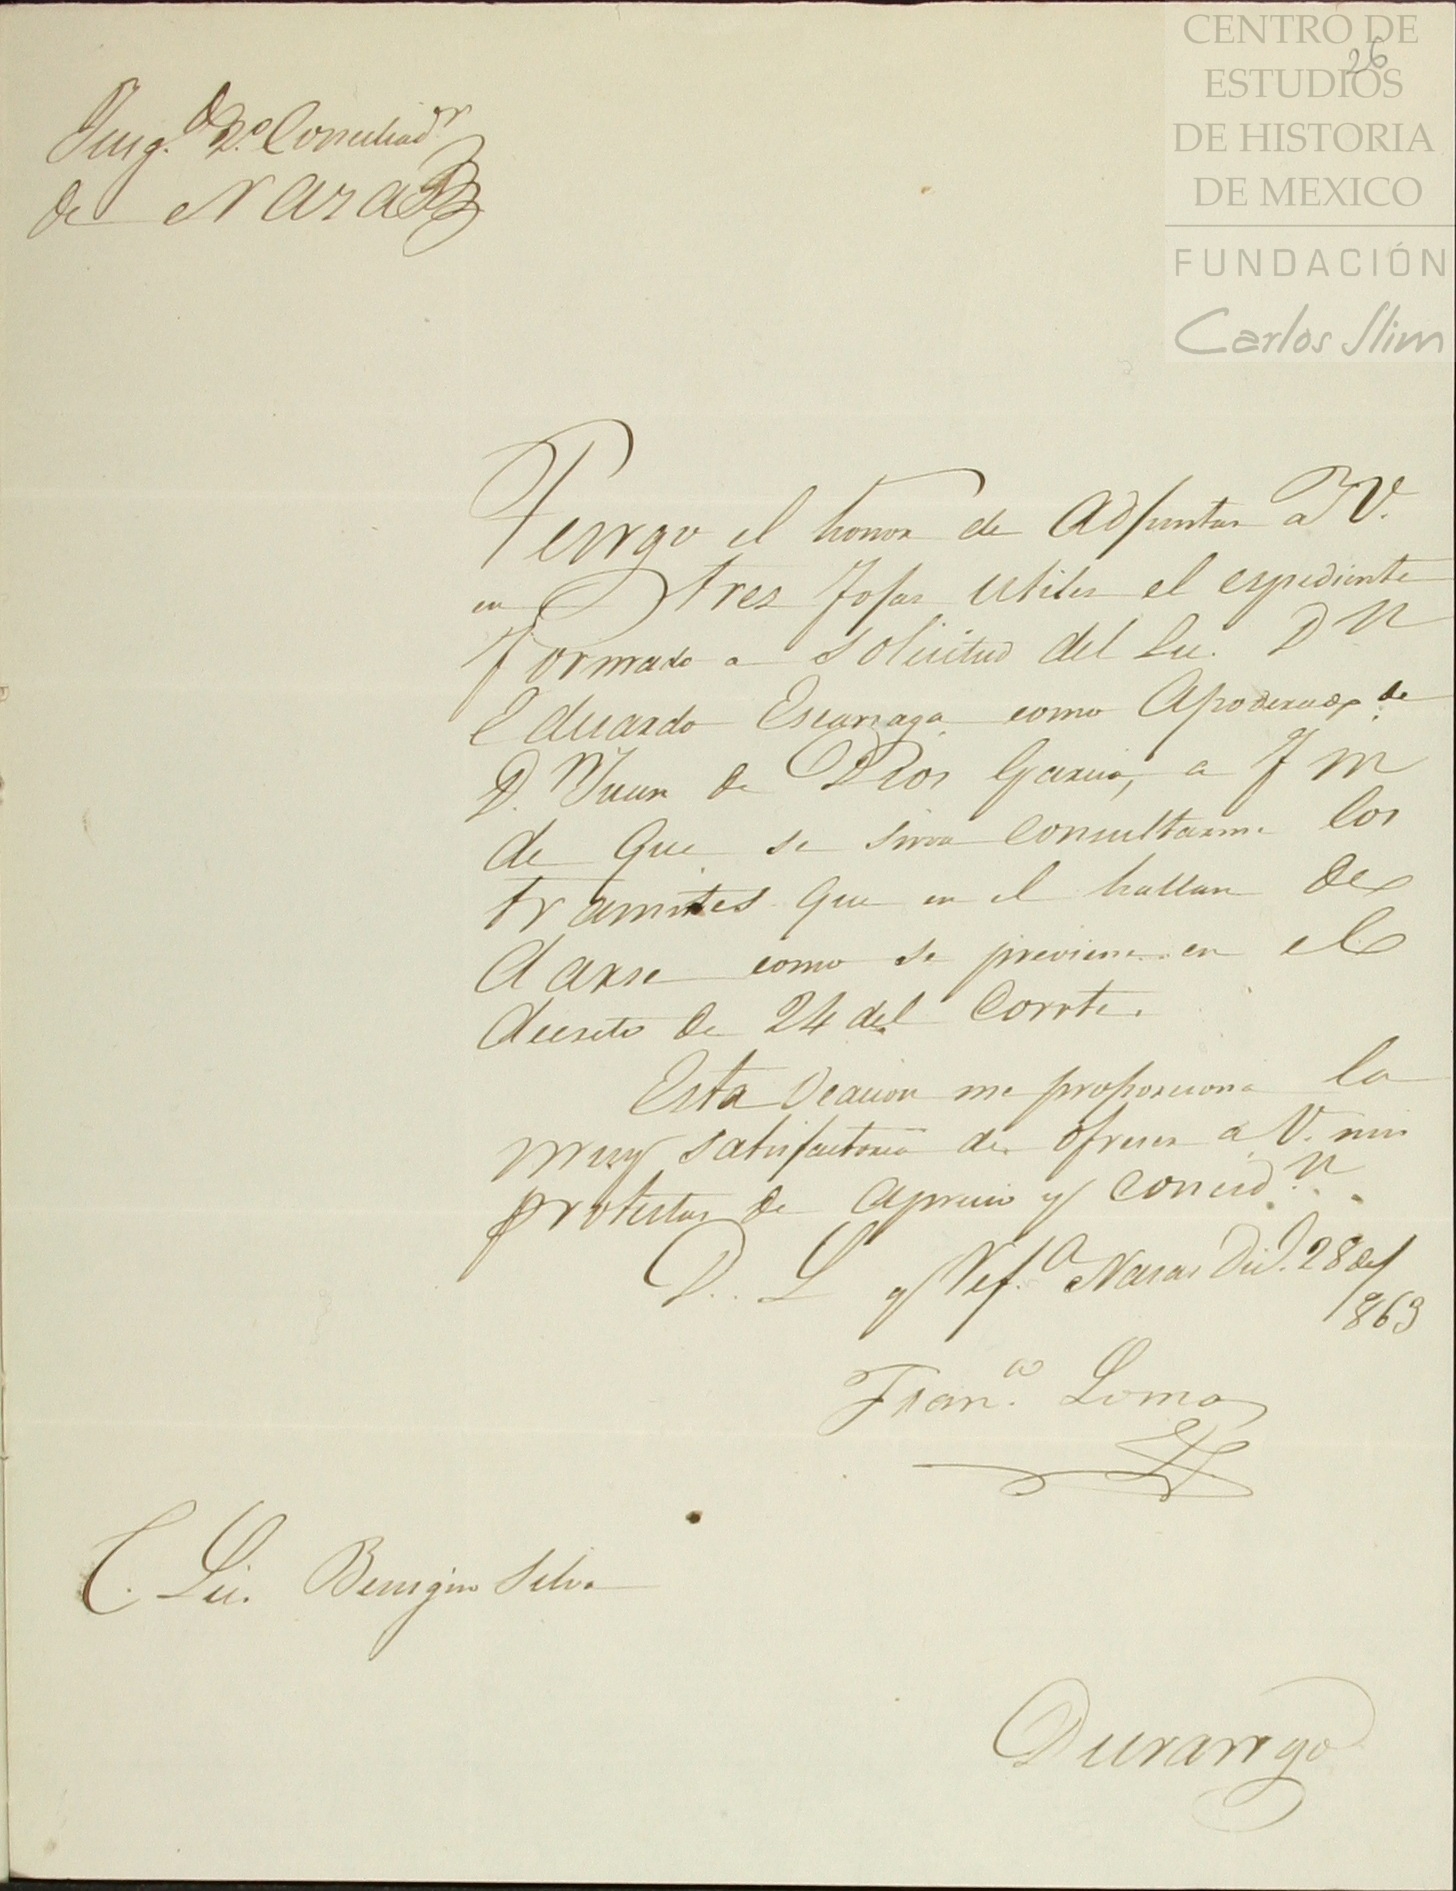 CENTRO DE
ESTUDIOS
DE HISTORIA
DE MEXICO
FUNDACIÓN
Carlos Slim
26
Juzg.do 2.o Conciliador
de Nazas
Tengo el honor de Adjuntar a V.
en tres fojas utiles el espediente
formado a solicitud del Lic. Dn
Eduardo Escarzaga como Apoderado de
D. Juan de Dios Garcia, a f m
de que se sirva consultarme los
tramites que en el hallan de
darse como se previene en el
decreto de 24 del Corrte.
Esta Ocacion me proporciona la
muy satisfactoria de ofrecer a V. mis
protestas de aprecio y concid.n
D. L y Ref.a Nazas Dic. 28 de
1863
Fran.co Loma
C. Lic. Benigno Silva
Durango